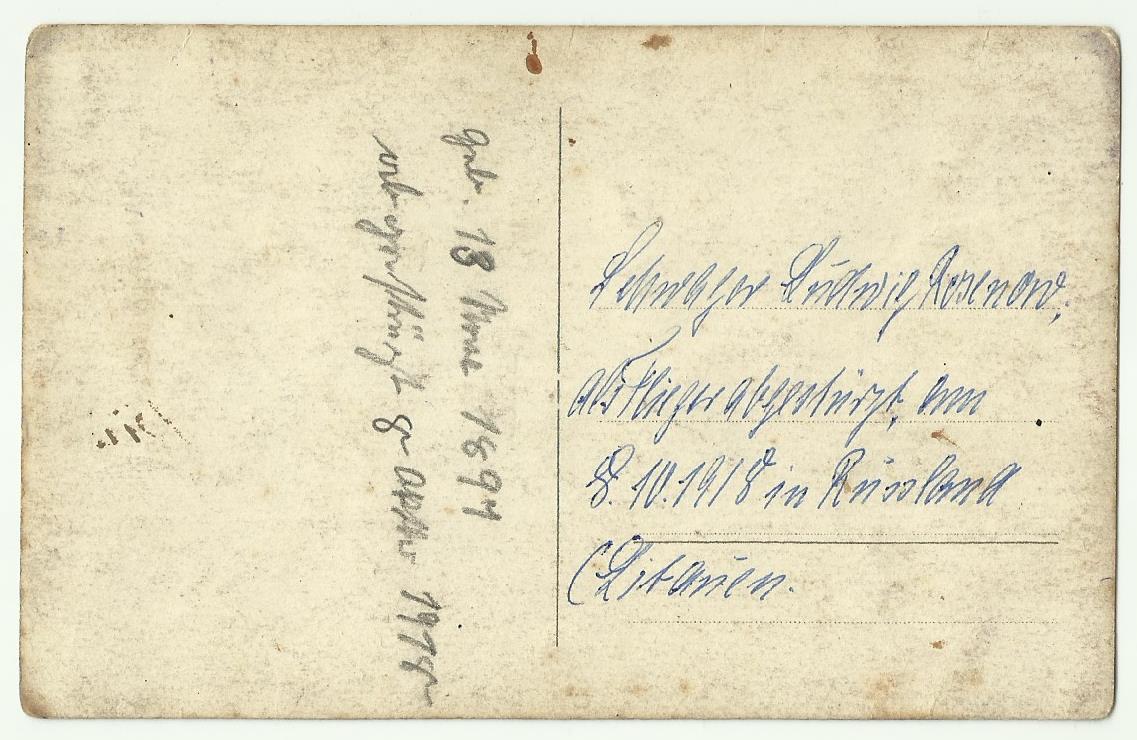 geb. 18 1894
abgestürzt 8 1918
Schwager Ludwig Rosenow,
als Flieger abgestürzt, am
8.10.1918 in Russland
(Litauen.